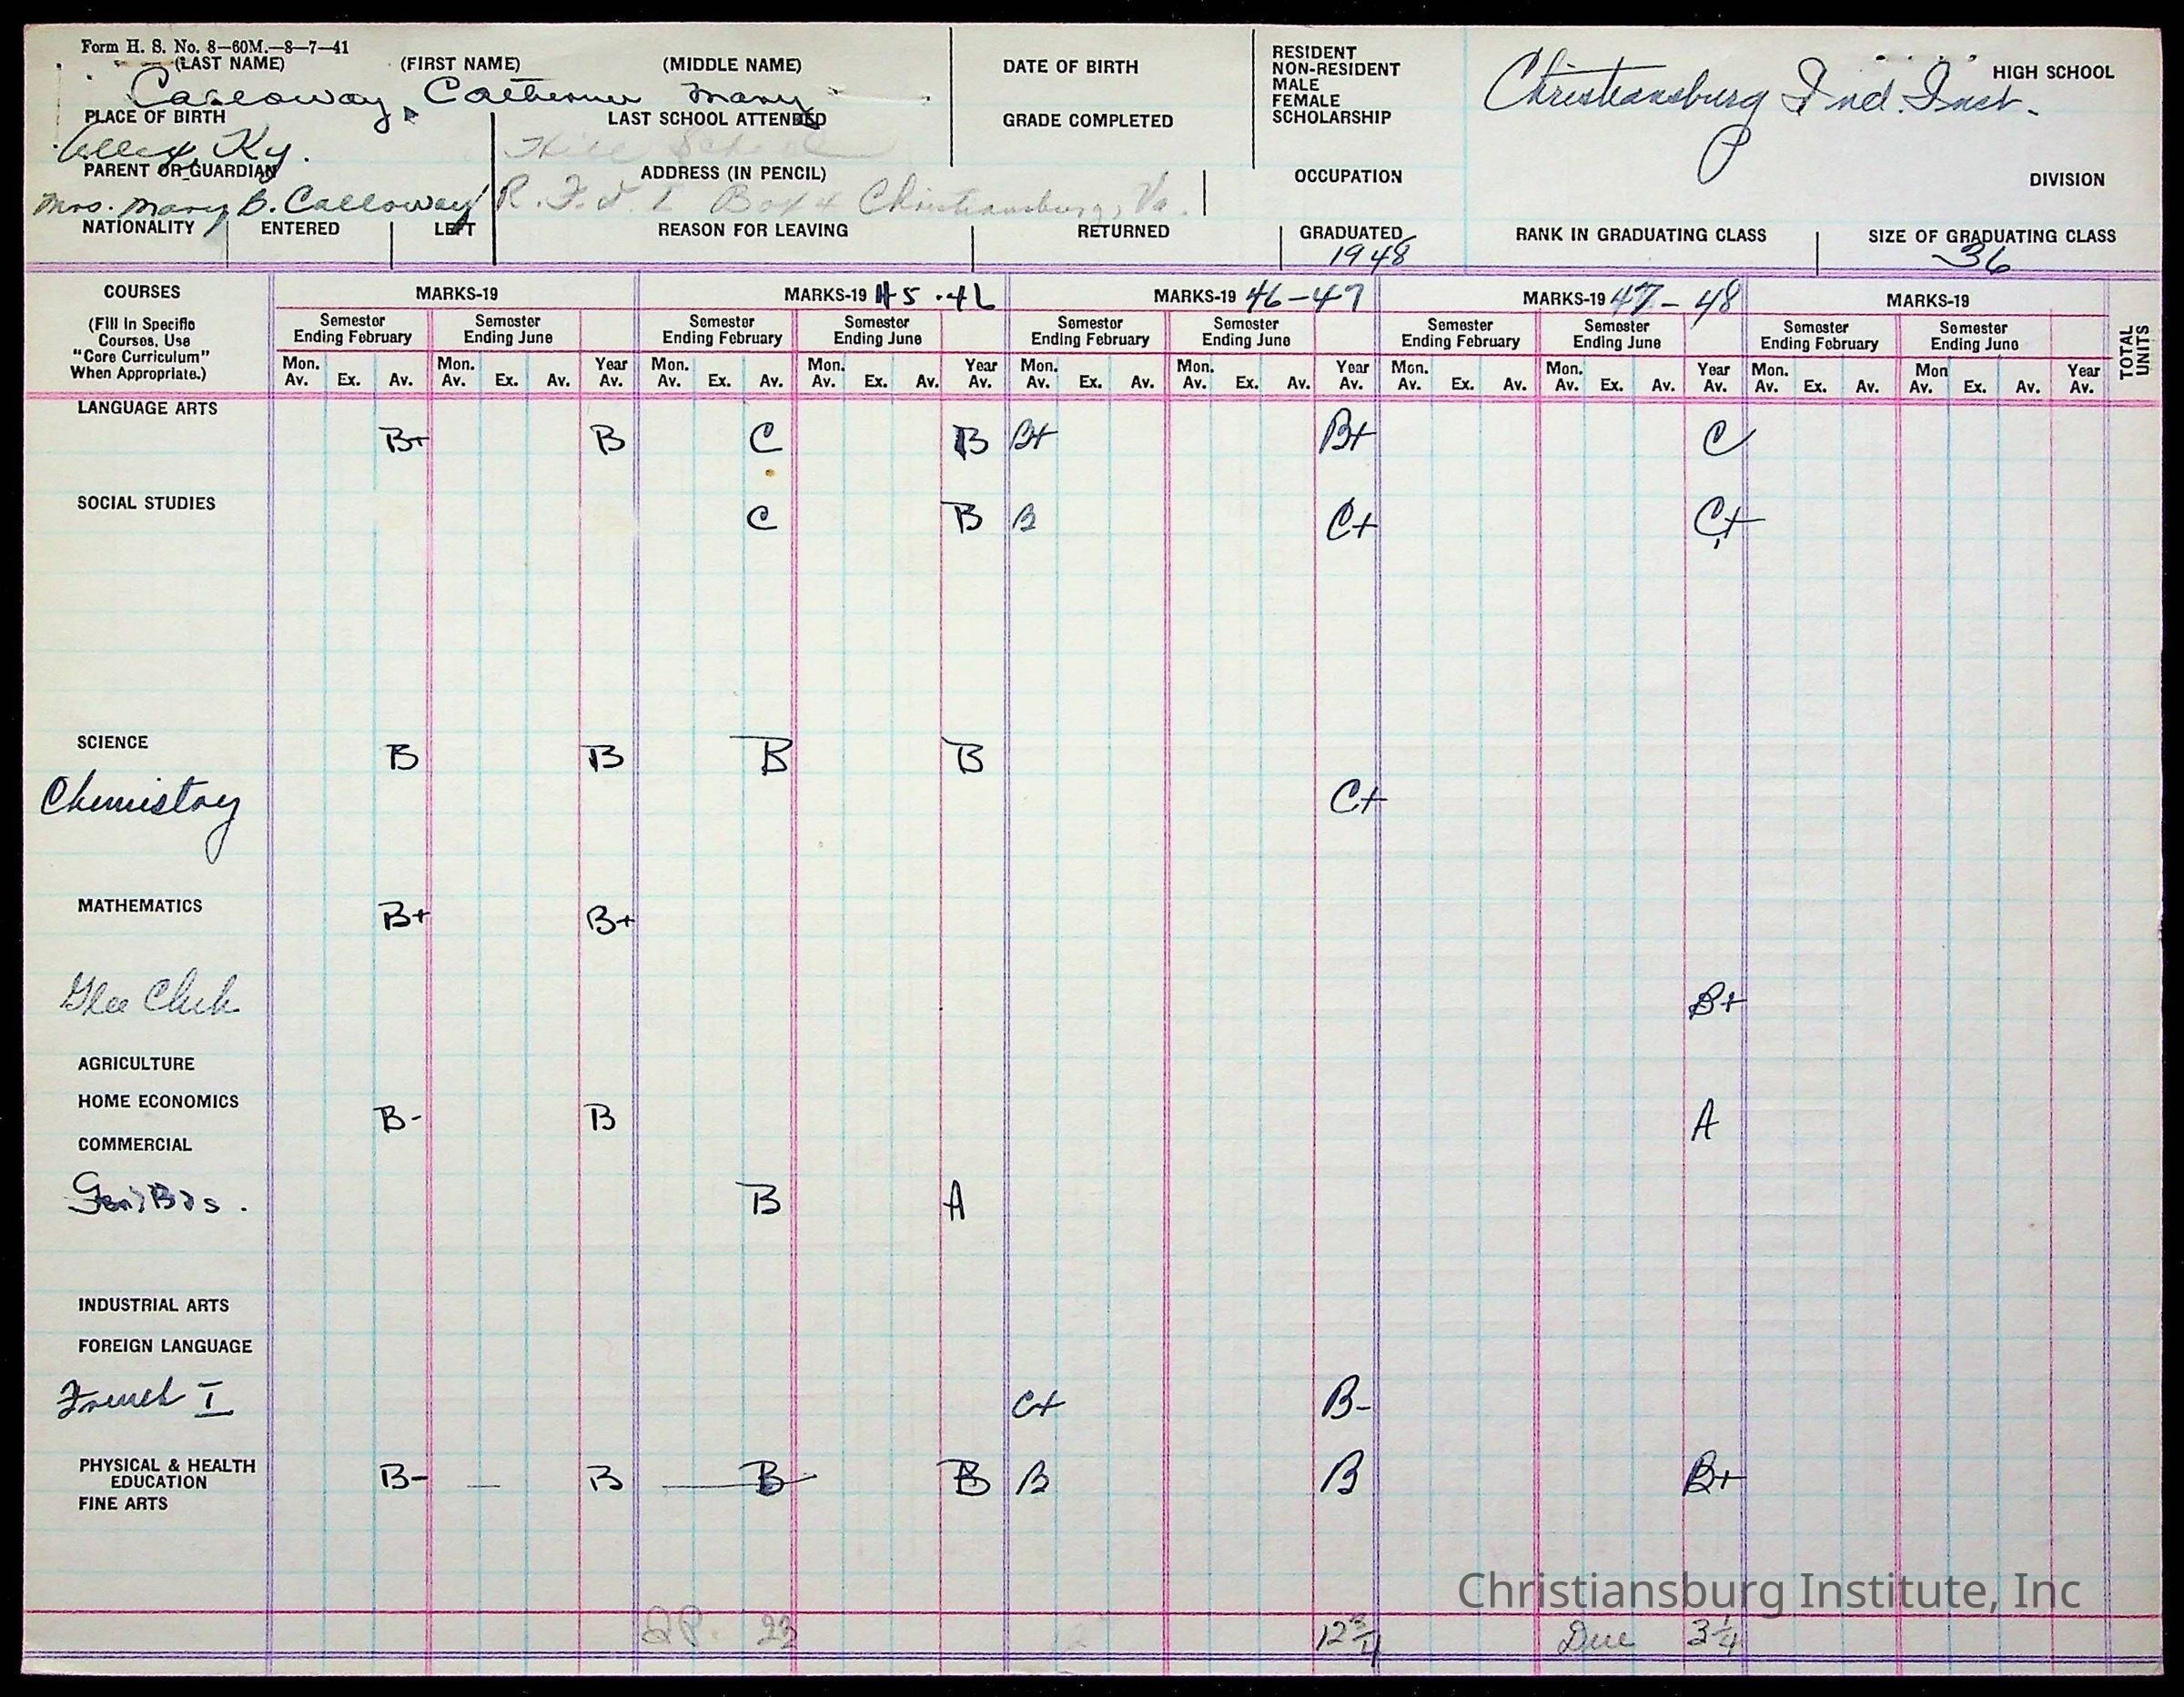 Form H. S. No. 8—60M.—8—7—41
(LAST NAME) (FIRST NAME) (MIDDLE NAME) DATE OF BIRTH RESIDENT
NON-RESIDENT
MALE
FEMALE
SCHOLARSHIP
Christiansburg Ind. Inst. HIGH SCHOOL
Calloway, Catherine Mary
PLACE OF BIRTH LAST SCHOOL ATTENDED GRADE COMPLETED
Ky. Hill School
PARENT OR GUARDIAN ADDRESS (IN PENCIL) OCCUPATION DIVISION
Mrs. Mary B. Calloway R.F.d. 1 Box 4 Christiansburg, Va.
NATIONALITY ENTERED LEFT REASON FOR LEAVING RETURNED GRADUATED RANK IN GRADUATING CLASS SIZE OF GRADUATING CLASS
1948 36
COURSES MARKS-19 MARKS-19 45-46 MARKS-19 46-47 MARKS-19 47-48 MARKS-19
(Fill In Specific
Courses, Use
"Core Curriculum"
When Appropriate.)
Semester Ending February Semester Ending June Semester Ending February Semester Ending June Semester Ending February Semester Ending June Semester Ending February Semester Ending June Semester Ending February Semester Ending June TOTAL UNITS
Mon. Av. Ex. Av. Mon. Av. Ex. Av. Year Av. Mon. Av. Ex. Av. Mon. Av. Ex. Av. Year Av. Mon. Av. Ex. Av. Mon. Av. Ex. Av. Year Av. Mon. Av. Ex. Av. Mon. Av. Ex. Av. Year Av. Mon. Av. Ex. Av. Mon Av. Ex. Av. Year Av.
LANGUAGE ARTS
B+ B C B B+ B+ C
SOCIAL STUDIES
C B B C+ C+
SCIENCE
B B B B
Chemistry C+
MATHEMATICS
B+ B+
Glee Club B+
AGRICULTURE
HOME ECONOMICS
B- B A
COMMERCIAL
Gen. Bus. B A
INDUSTRIAL ARTS
FOREIGN LANGUAGE
French I C+ B-
PHYSICAL & HEALTH
EDUCATION
B- B B B B B B+
FINE ARTS
Christiansburg Institute, Inc
QP. 23 12 3/4 Due 3 1/4